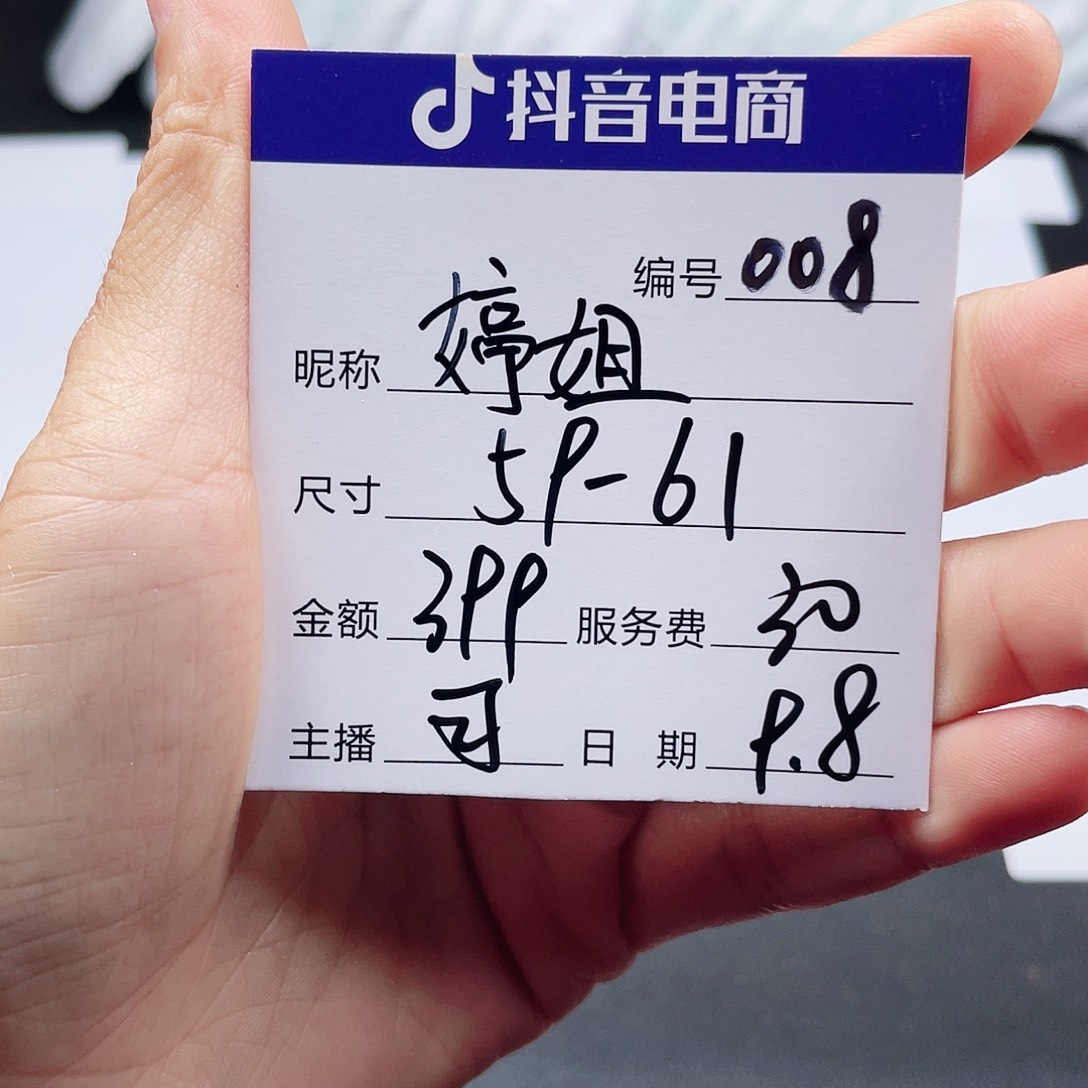 抖音电商
编号 008
昵称 婷姐
尺寸 59-61
金额 399 服务费 30
主播 司 日期 9.8